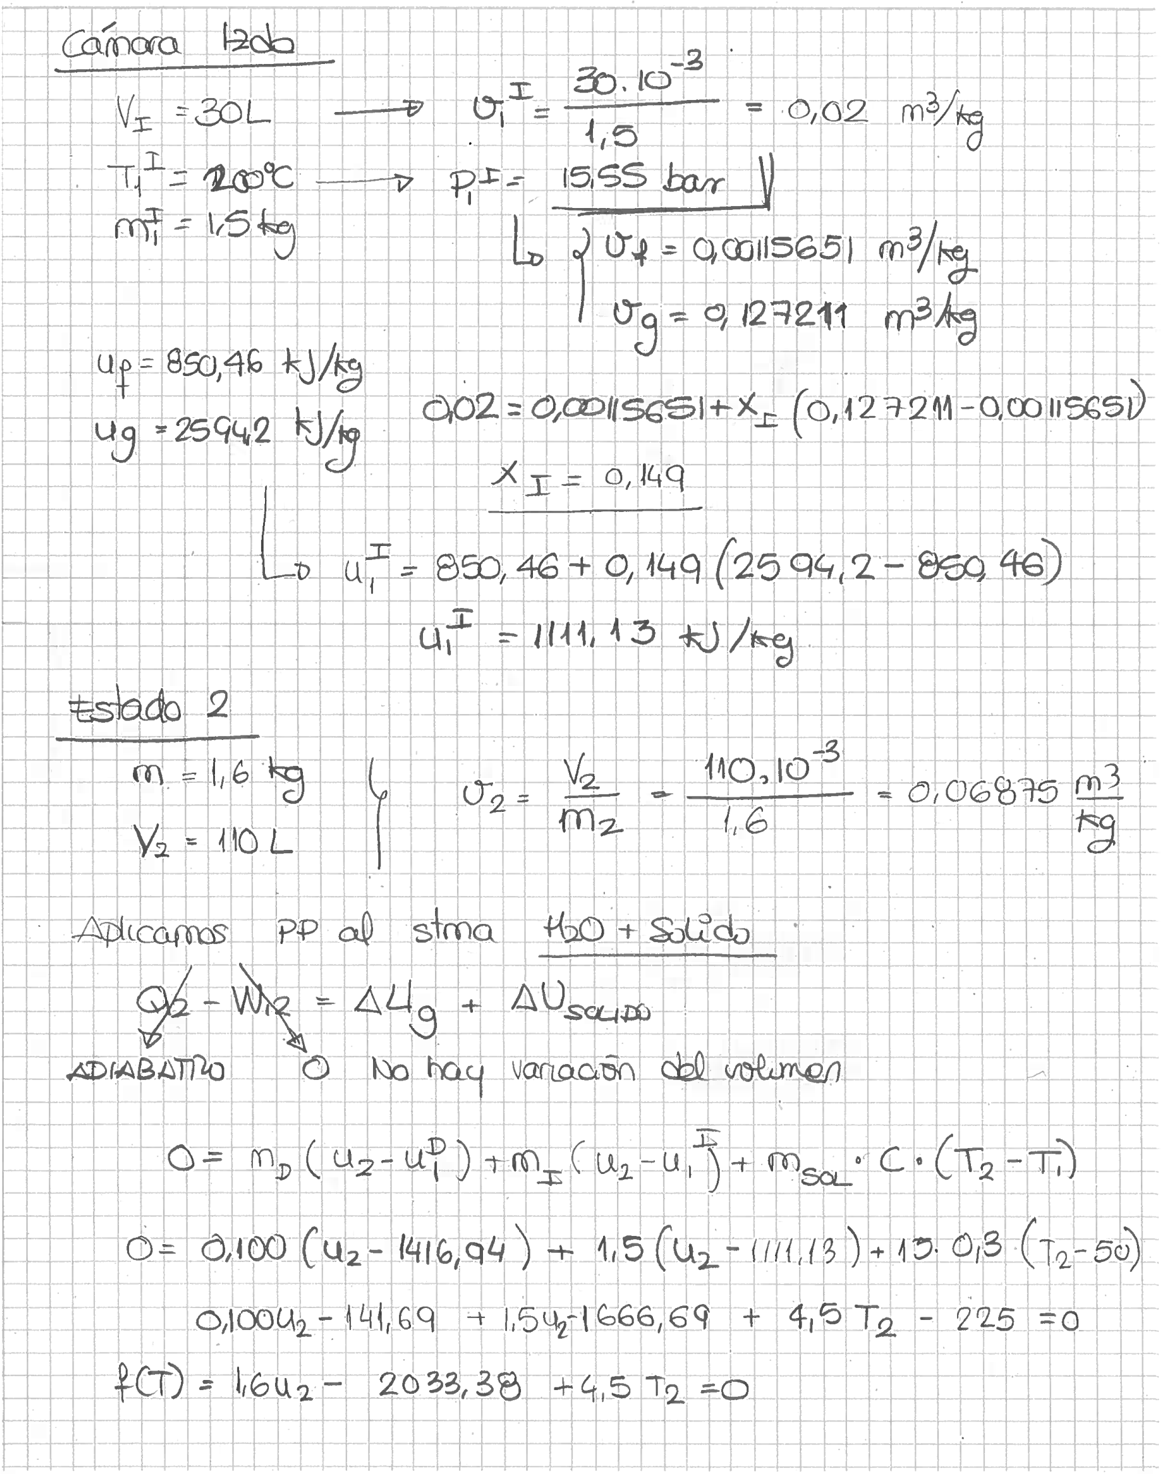 Cámara Izda
V_I = 30L → v_1^I = 30.10^-3 / 1,5 = 0,02 m³/kg
T_1^I = 200°C → P_1^I = 15,55 bar
m_1^I = 1,5 kg
v_f = 0,00115651 m³/kg
v_g = 0,127211 m³/kg
u_f = 850,46 kJ/kg
u_g = 2594,2 kJ/kg
0,02 = 0,00115651 + x_I (0,127211 - 0,00115651)
x_I = 0,149
u_1^I = 850,46 + 0,149 (2594,2 - 850,46)
u_1^I = 1111,13 kJ/kg
Estado 2
m = 1,6 kg
V_2 = 110 L
v_2 = V_2 / m_2 = 110.10^-3 / 1,6 = 0,06875 m³/kg
Aplicamos PP al stma H2O + Solido
Q_12 - W_12 = ΔU_g + ΔU_SOLIDO
ADIABATICO 0 No hay variación del volumen
0 = m_D (u_2 - u_1^D) + m_I (u_2 - u_1^I) + m_SOL · C · (T_2 - T_1)
0 = 0,100 (u_2 - 1416,94) + 1,5 (u_2 - 1111,13) + 15. 0,3 (T_2 - 50)
0,100u_2 - 141,69 + 1,5u_2 - 1666,69 + 4,5 T_2 - 225 = 0
f(T) = 1,6u_2 - 2033,38 + 4,5 T_2 = 0